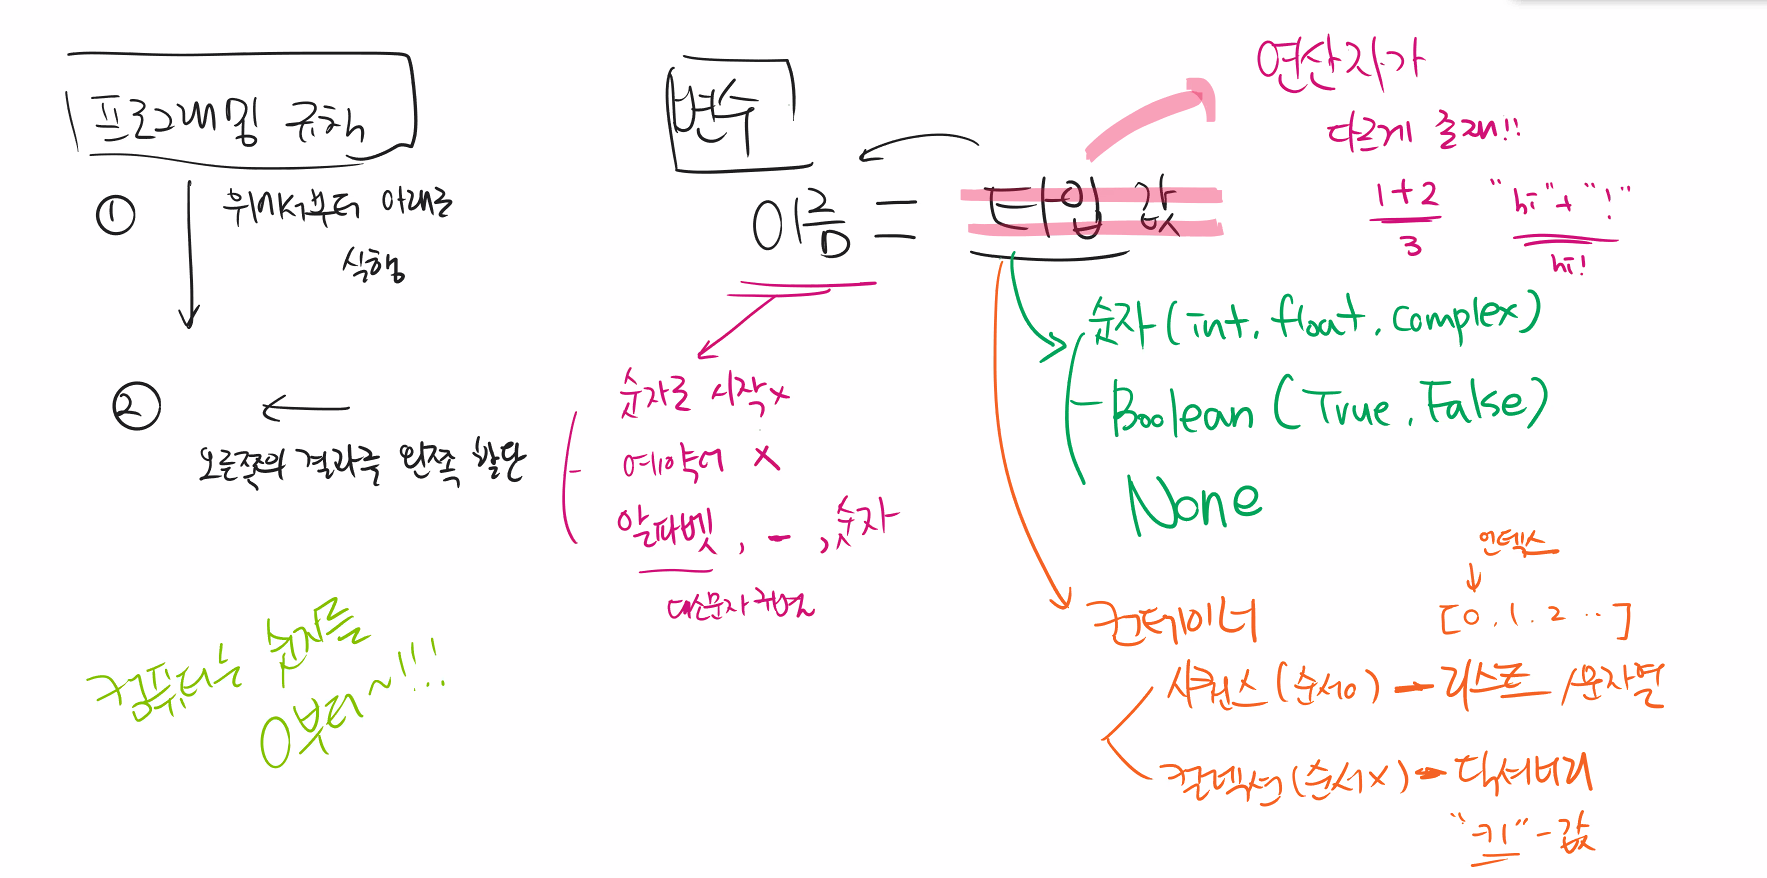 프로그래밍 규칙
① 위에서부터 아래로
실행
② ←
오른쪽의 결과를 왼쪽 할당
컴퓨터는 숫자를
0부터~!!!
변수
이름 = 타입 값
숫자로 시작 x
예약어 x
알파벳, _ , 숫자
대소문자 구별
연산자가
다르게 존재!!
1+2
3
"hi"+"!"
hi!
숫자(int, float, complex)
Boolean (True, False)
None
컨테이너
인덱스
[0, 1, 2 ..]
시퀀스(순서o) → 리스트 / 문자열
컬렉션(순서x) → 딕셔너리
"키" - 값